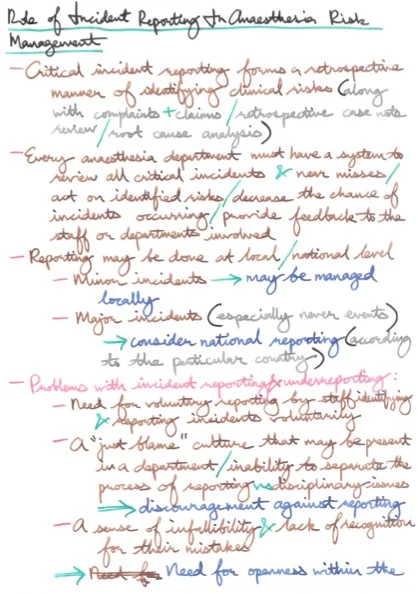 Role of Incident Reporting In Anaesthesia Risk
Management
- Critical incident reporting forms a retrospective
manner of identifying clinical risks (along
with complaints + claims / retrospective case note
review / root cause analysis)
- Every anaesthesia department must have a system to
review all critical incidents & near misses /
act on identified risks / decrease the chance of
incidents occurring / provide feedback to the
staff or departments involved
- Reporting may be done at local / national level
- Minor incidents → may be managed
locally
- Major incidents (especially never events)
→ consider national reporting (according
to the particular country)
- Problems with incident reporting & underreporting:
- Need for voluntary reporting by staff identifying
& reporting incidents voluntarily
- A "just blame" culture that may be present
in a department / inability to separate the
process of reporting vs disciplinary issues
→ discouragement against reporting
- A sense of infallibility & lack of recognition
for their mistakes
→ Need for openness within the